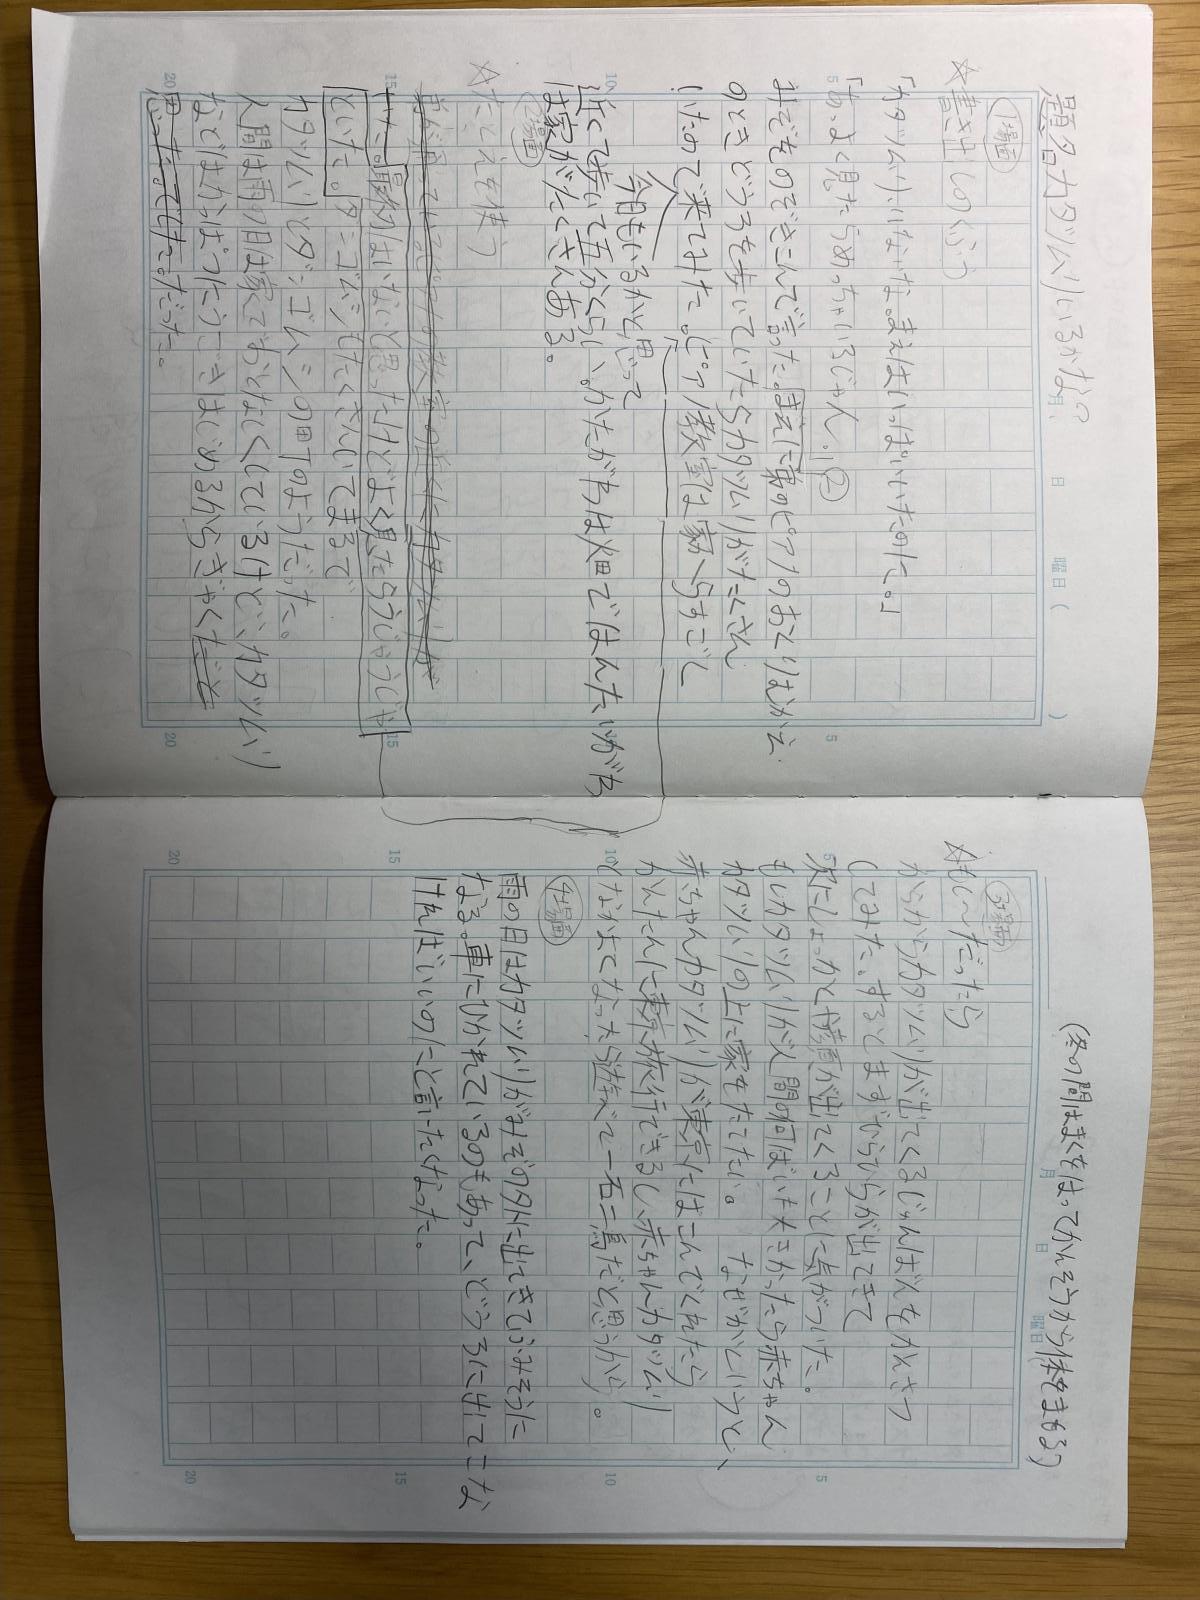 題名カタツムリいるかな?
月 日 曜日( )
1場面
☆書き出しのくふう
「カタツムリいないな。まえはいっぱいいたのに。」
「あ、よく見たらめっちゃいるじゃん。」②
みぞをのぞきこんで言った。まえに車のピアノのおくりむかえ
のときどうろを歩いていたらカタツムリがたくさん
いたので来てみた。ピアノ教室は家からすごく
今日もいるかと思って
近くて歩いて五分くらい。かたがわは畑ではんたいがわ
は家がたくさんある。
2場面
☆たとえを使う
いた。最初はいないと思ったけどよく見たらうじゃうじゃ
といた。ダンゴムシもたくさんいてまるで
カタツムリとダンゴムシの町のようだった。
人間は雨の日は家でおとなしくしているけど、カタツムリ
などはかっぱつにうごきはじめるからぎゃくだと
思った。
3場面
☆もし〜だったら
からからカタツムリが出てくるじゅんばんもかんさつ
してみた。するとまずからからが出てきて
次にしょっかくと横顔が出てくることに気がついた。
もしカタツムリが人間の何ばいも大きかったら赤ちゃん
カタツムリの上に家をたてたい。なぜかというと、
赤ちゃんカタツムリが東京にはこんでくれたら
かんたんに東京旅行できるし赤ちゃんカタツムリ
となかよくなったら遊べて一石二鳥だと思うから。
4場面
雨の日はカタツムリがみぞの外に出てきてふみそうに
なる。車にひかれているのもあって、どうろに出てこな
ければいいのにと言いたくなった。
(冬の間はまくをはってかんそうから体をまもる)
月 日 曜日
5
10
15
20